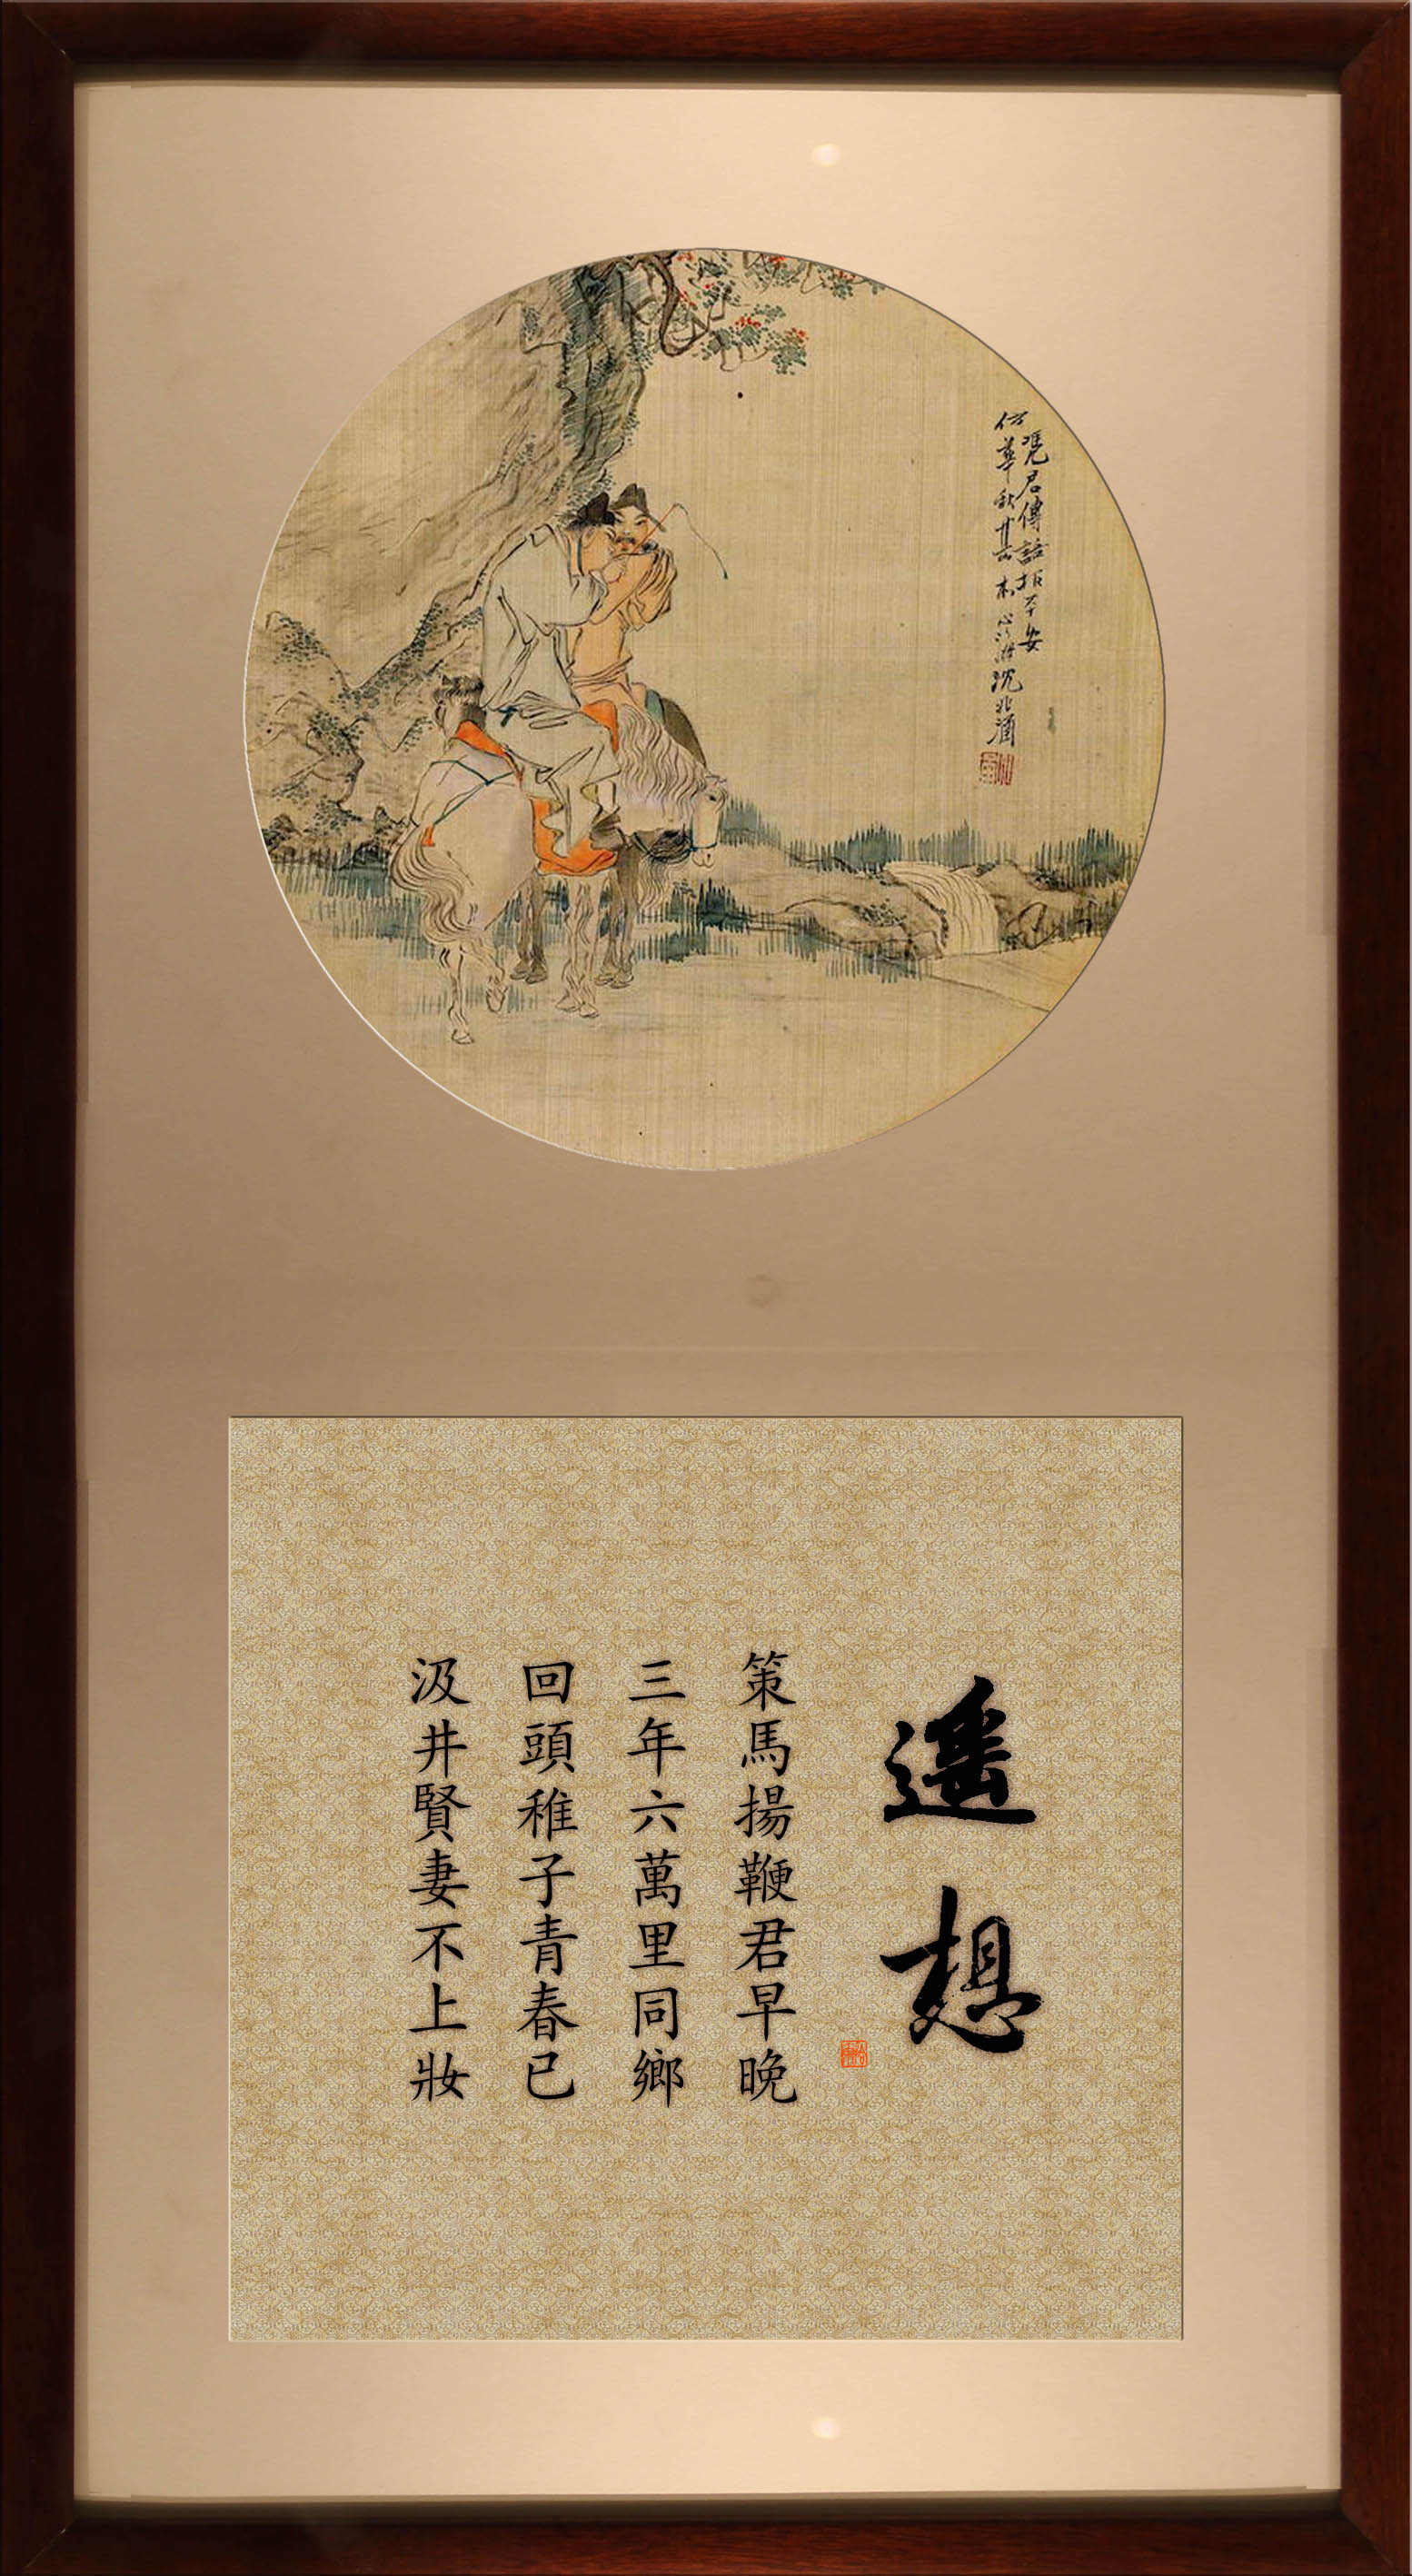 憑君傳語報平安
仿華秋岳本心海沈兆涵
遙想
策馬揚鞭君早晚
三年六萬里同鄉
回頭稚子青春已
汲井賢妻不上妝